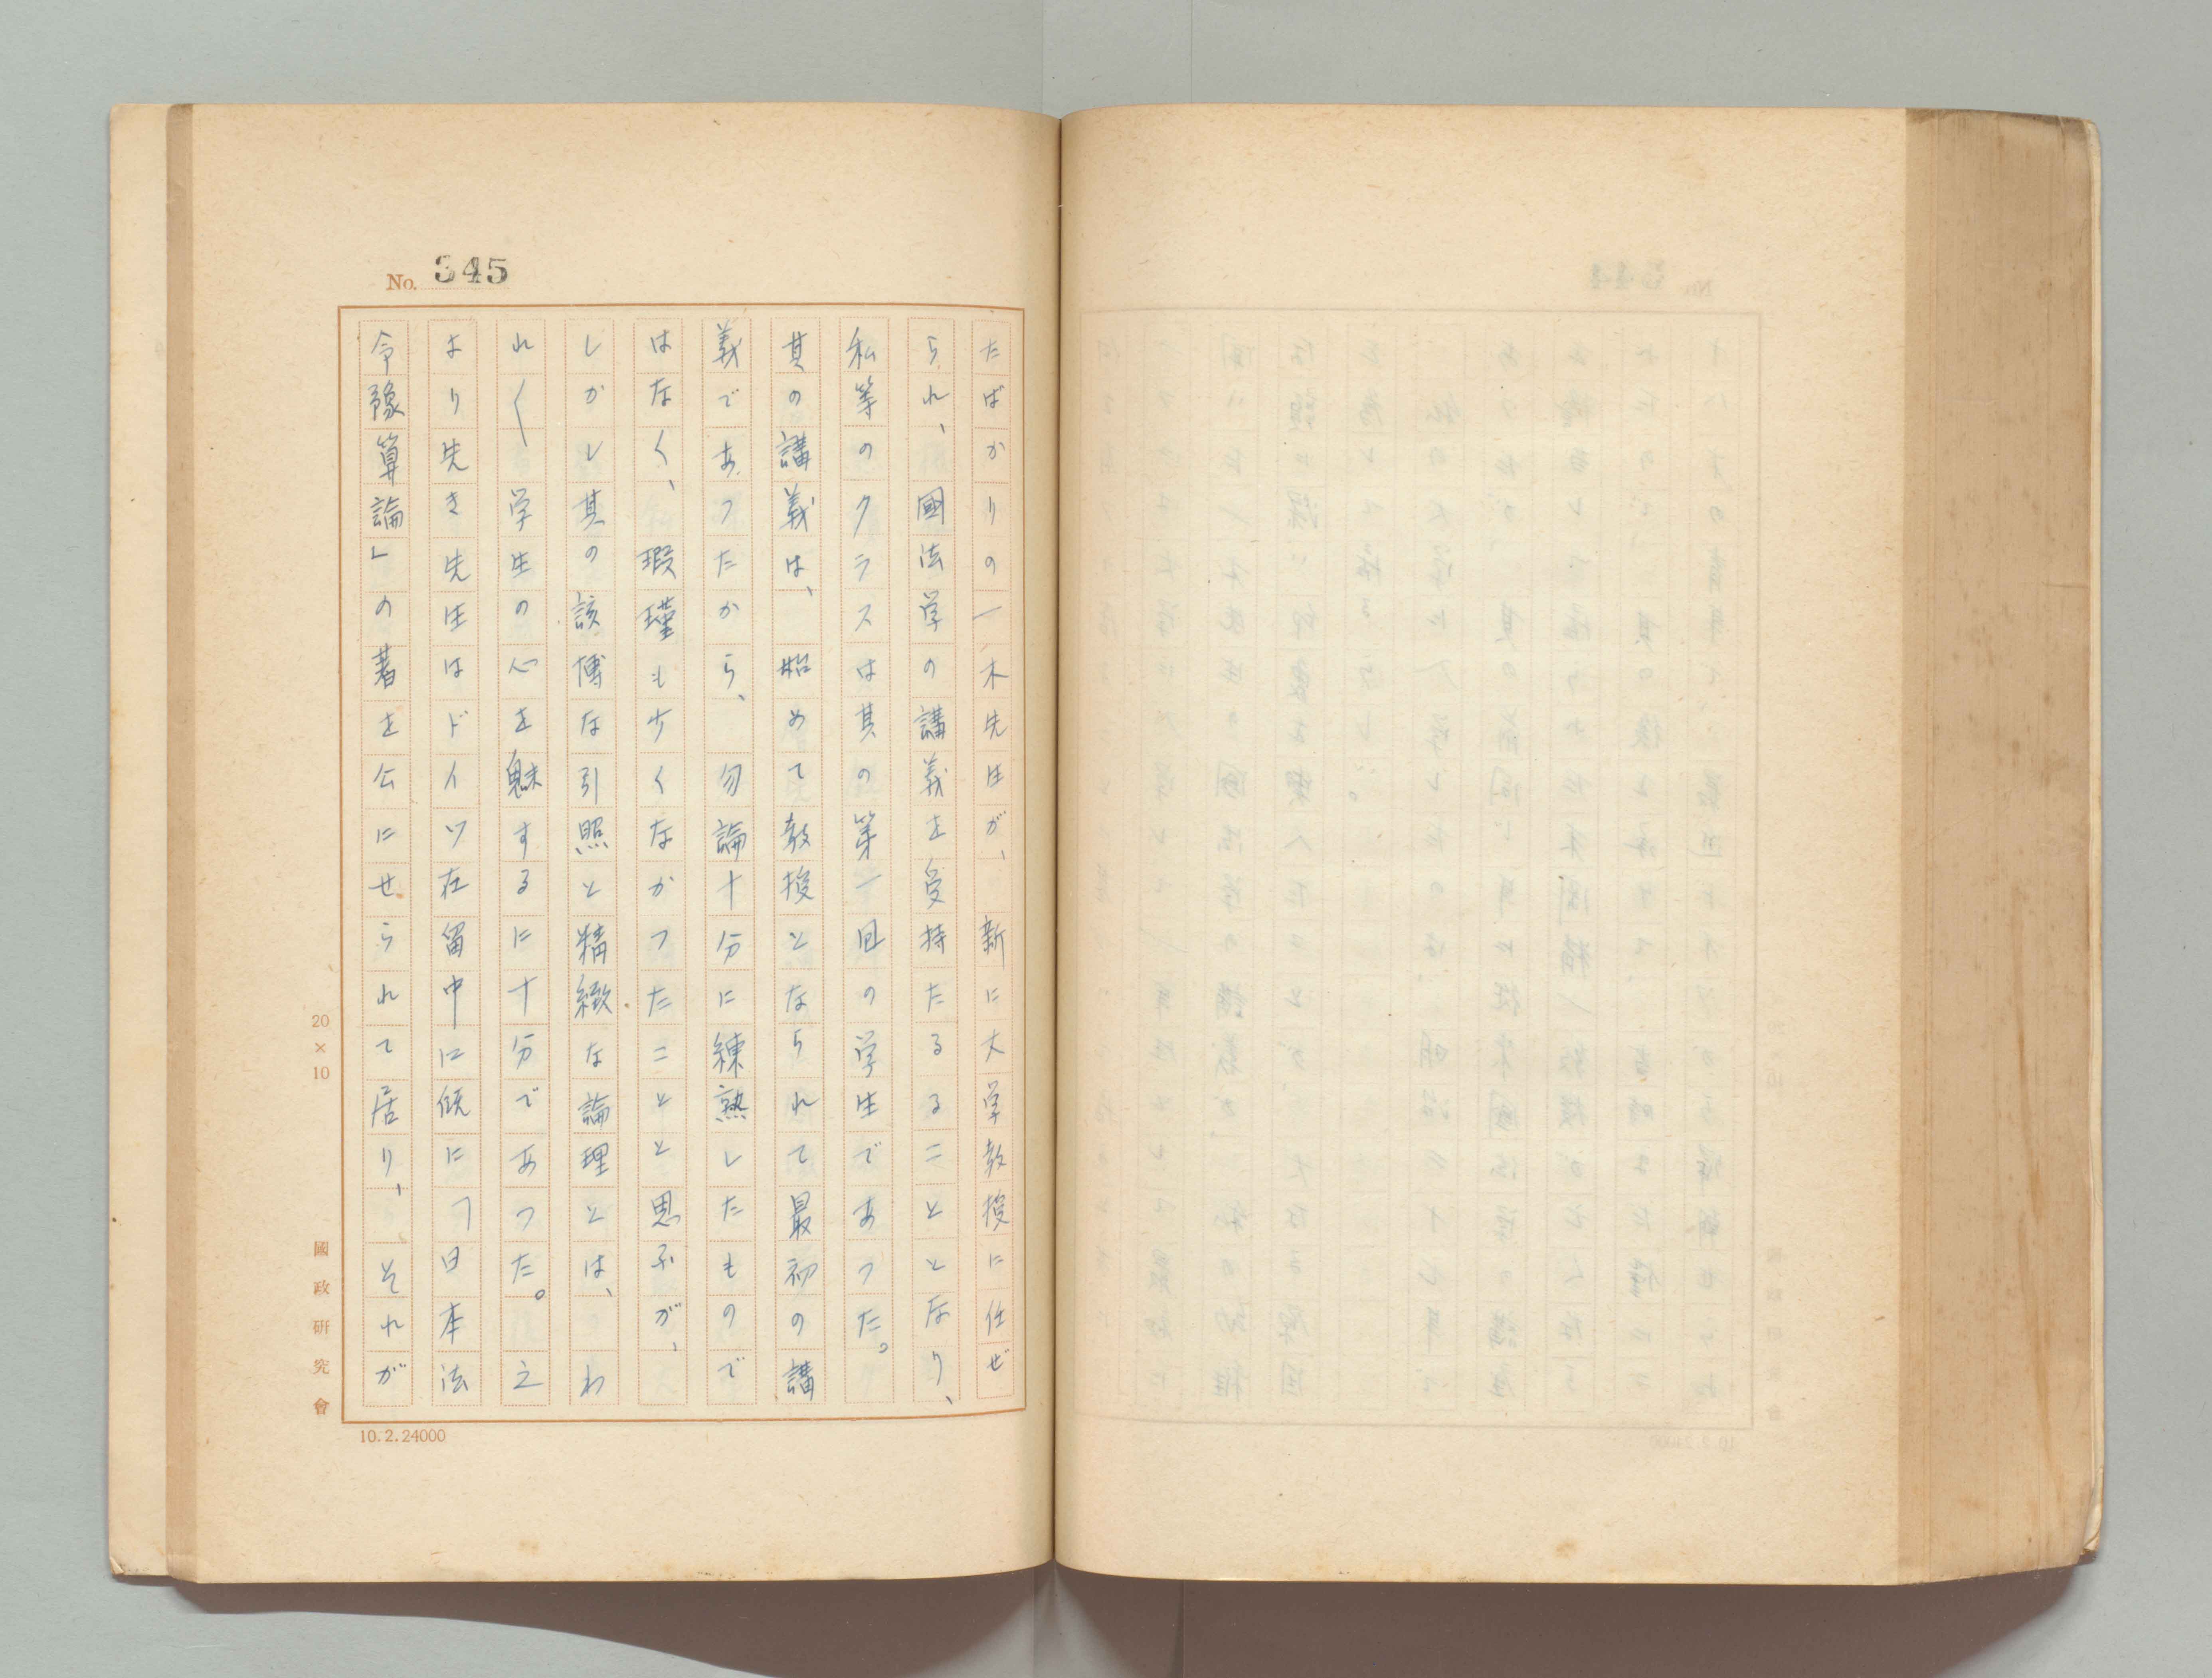 No. 345
たばかりの一木先生が、新に大学教授に任ぜ
られ、國法学の講義を受持たるることとなり、
私等のクラスは其の第一回の学生であつた。
其の講義は、始めて教授となられて最初の講
義であつたから、勿論十分に練熟したもので
はなく、瑕瑾も少くなかつたことと思ふが、
しかし其の該博な引照と精緻な論理とは、わ
れ〱学生の心を魅するに十分であつた。之
より先き先生はドイツ在留中に既に「日本法
令豫算論」の著を公にせられて居り、それが
20×10
國政研究會
10.2.24000